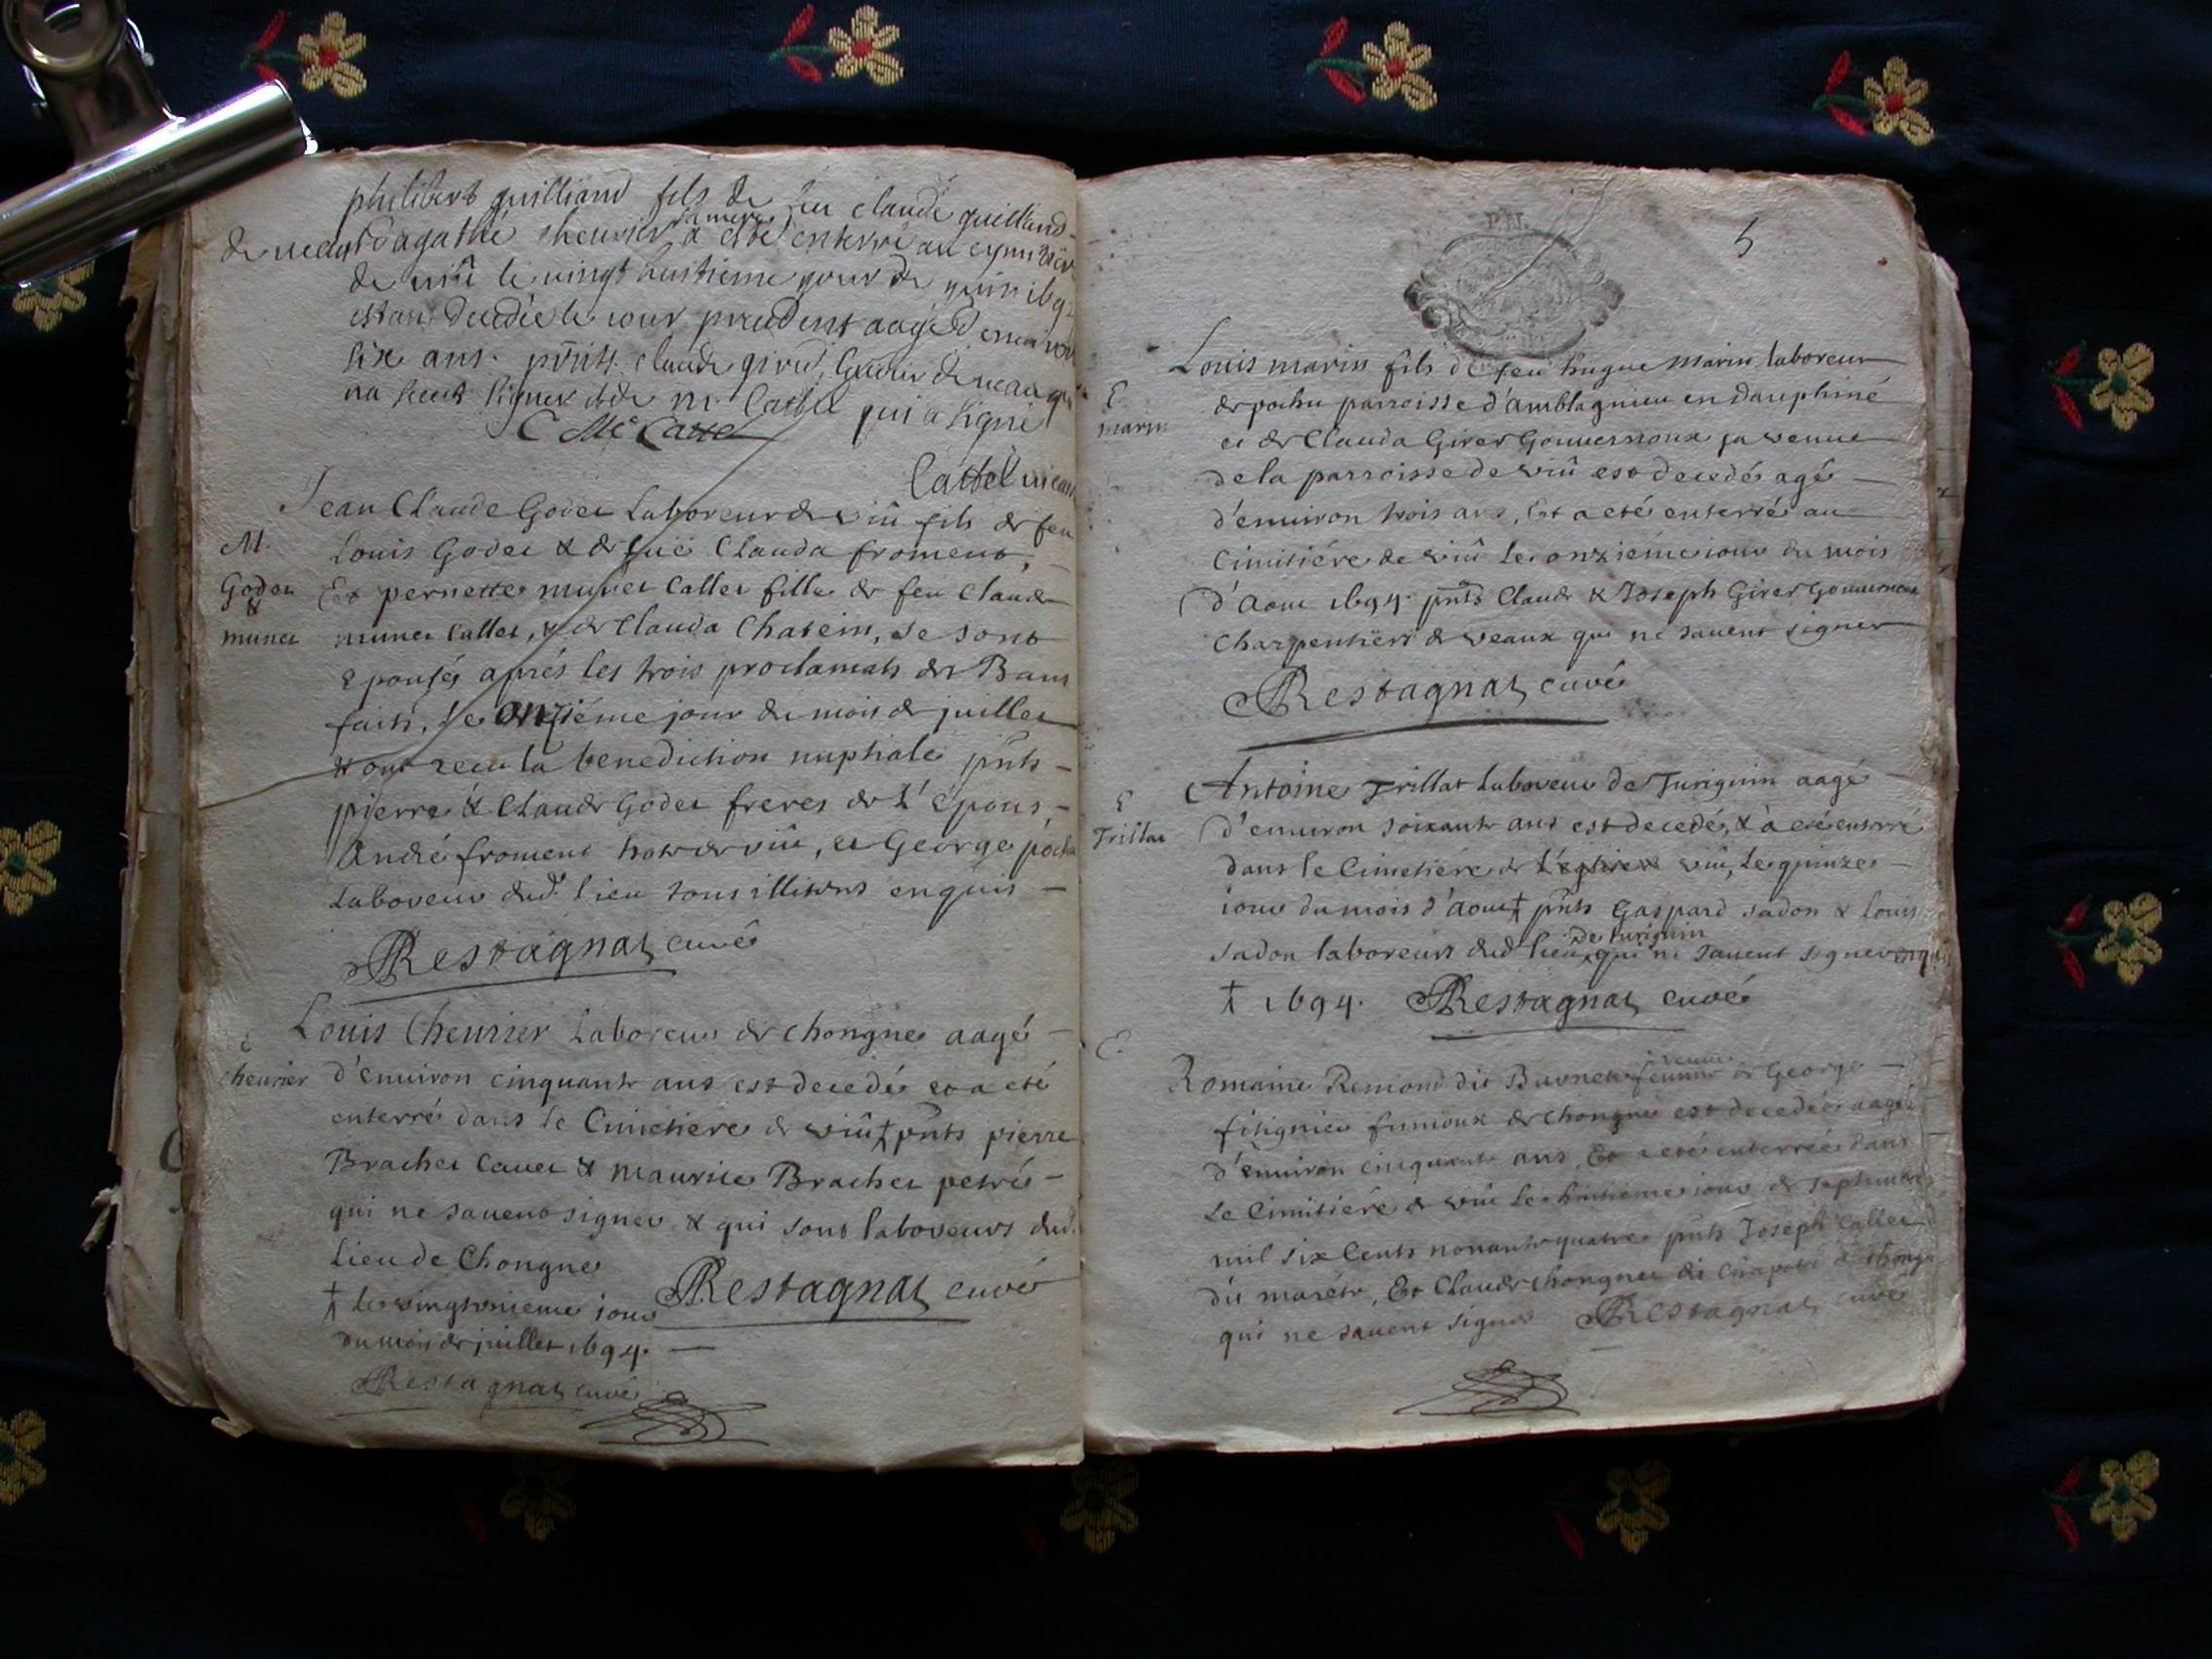 philibert guilliand fils de feu claude guilliand
de veaux & agathe cheurier sa mere a esté enterré au cymitier
de viû le vingt huitieme jour de juin 169
estant decedé le iour precedent aagé d'environ
six ans. pnts. claude girod de veau qui
na sceut signer et de mr Cattel qui a signé
C Me Cattel
Cattel vicaire
Jean Claude Godet Laboreur de viû fils de feu
Louis Godet & de fuë Clauda froment,
Et pernette munet Callet fille de feu Claude
munet Callet, & de Clauda Chatein, se sont
épousés aprés les trois proclamats de Bans
faits, le onziéme jour du mois de juillet
& ont receu la benediction nuptiale pnts
pierre & Claude Godet freres de L'Epous,
André froment hote de viû, et George
Laboreur dud. lieu tous illiterés enquis
M.
Godet
&
munet
Restagnat curé
Louis Cheurier Laboreur de chongne aagé
d'enuiron cinquante ans est decedé et a eté
enterré dans le Cimetiere de viû † pnts pierre
Brachet Cauet & maurice Brachet petré
qui ne sauent signer & qui sont laboreurs dud.
Lieu de Chongne
† le vingtunieme iour
du mois de juillet 1694.
E
cheurier
Restagnat curé
Restagnat curé
5
Louis marin fils de feu hugue marin laboreur
de pochu parroisse d'amblagnieu en Dauphiné
et de Clauda Giret Gouuernoux sa veuue
de la parroisse de viû est decedé agé
d'enuiron trois ans, Et a eté enterré au
Cimitiére de viû Le onziéme iour du mois
d'Aout 1694. pnts Claude & Joseph Giret Gouuernoux
Charpentiers de veaux qui ne sauent signer
E
marin
Restagnat curé
Antoine Trillat Laboreur de Turignin aagé
d'enuiron soixante ans est decedé, & a eté enterré
dans le Cimetiére de L'eglise viû, Le quinze
iour du mois d'Aout † pnts Gaspard sadon & Louis
sadon laboreurs dud lieu de turignin qui ne sauent signer enquis
† 1694. Restagnat curé
E
Trillat
E
Romaine Remond dit Burnet femme veuue de George
fitignieu fumoux de chongne est decedée aagée
d'enuiron cinquante ans, Et a eté enterrée dans
Le Cimitiére de viû Le huitieme iour de septembre
mil six Cents nonante quatre pnts Joseph Callet
du marétr, Et Claude Chongnet dit de chongne
qui ne sauent signer Restagnat curé